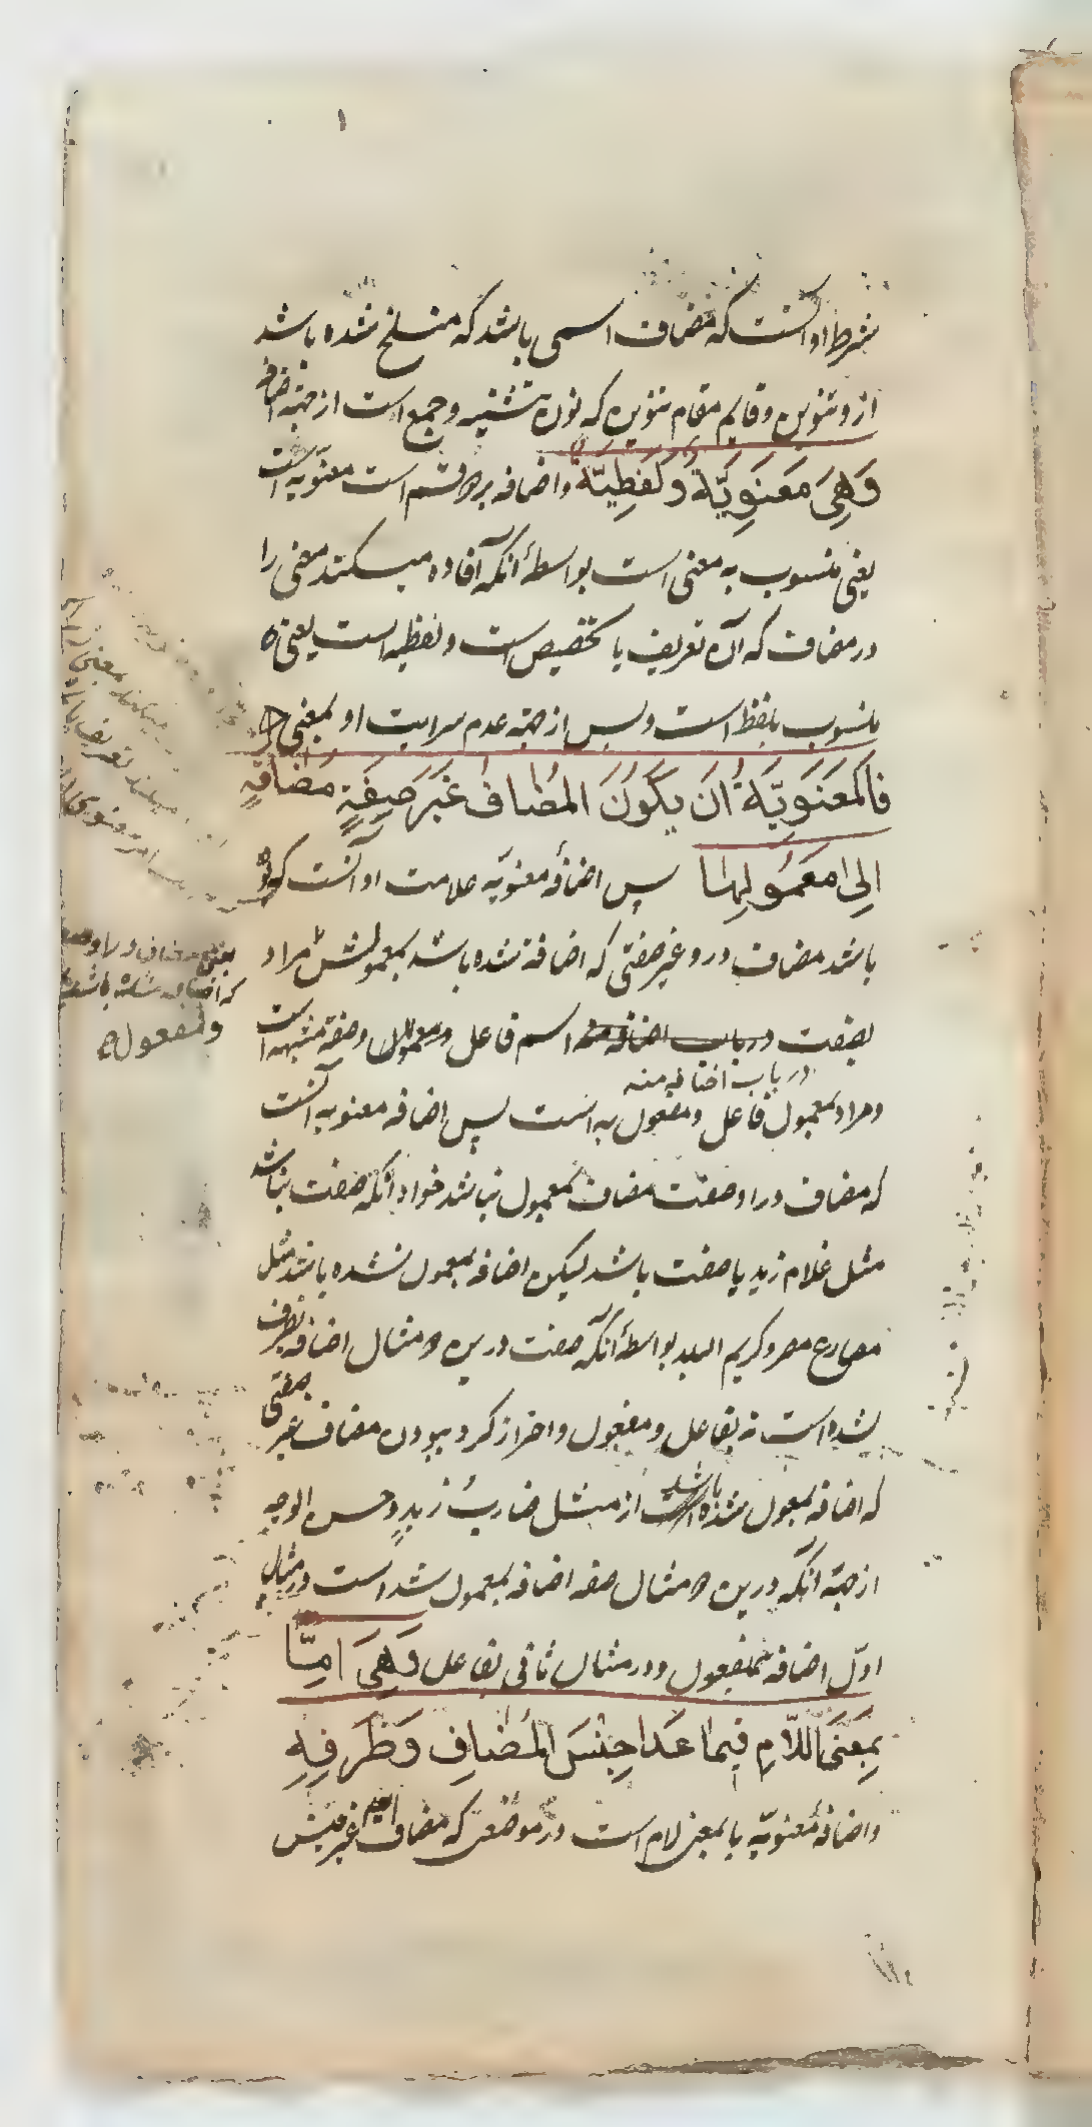 ۱
شرط او آنست که مضاف اسمی باشد که منسلخ شده باشد
از و تنوین و قایم مقام تنوین که نون تثنیه و جمع است از جهة اضافه
وَهِیَ مَعنَوِیَّةٌ وَلَفظِیَّةٌ و اضافه بر دو قسم است معنویه است
یعنی منسوب به معنی است بواسطهٔ آنکه آفاده میکند معنی را
در مضاف که آن تعریف یا تخصیص است و لفظیه است یعنی
منسوب بلفظ است و بس از جهة عدم سرایت او بمعنی
فَالمَعنَوِیَّةُ اَن یَکُونَ المُضافُ غَیرَ صِفَةٍ مُضافَةٍ
اِلی مَعمُولِها پس اضافهٔ معنویّه علامت او آنست که
باشد مضاف در و غیر صفتی که اضافة شده باشد بمعمولش مراد
بصفت در باب اضافه اسم فاعل و مفعول و صفة مشبهه است
در باب اضافه منه
و مراد بمعمول فاعل و مفعول به است پس اضافه معنویه آنست
که مضاف در او صفت مضاف بمعمول نباشد خواه آنکه صفت نباشد
مثل غلام زید یا صفت باشد لیکن اضافه بمعمول نشده باشد مثل
مصارع مصر و کریم البلد بواسطهٔ آنکه صفت درین دو مثال اضافه بظرف
شده است نه بفاعل و مفعول و احتراز کرد ببودن مضاف غیر صفتی
که اضافه بمعمول شده باشد از مثل ضاربُ زیدٍ و حسن الوجه
از جهة آنکه درین دو مثال صفه اضافه بمعمول شده است در مثال
اوّل اضافه بمفعول و در مثال ثانی بفاعل وَهِیَ اِمّا
بِمَعنَی اللّامِ فیما عَدا جِنسَ المُضافِ وَظَرفِهِ
و اضافهٔ معنویّه یا بمعنی لام است در موضعی که مضاف الیه غیر جنس
یعنی مضاف در او صفتی
که اضافه شده باشد
و مفعول به